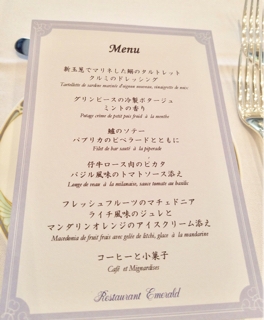 Menu
新玉葱でマリネした鰯のタルトレット
クルミのドレッシング
Tartelette de sardine marinée d'oignon nouveau, vinaigrette de noix
グリンピースの冷製ポタージュ
ミントの香り
Potage crème de petit pois froid à la menthe
鱸のソテー
パプリカのピペラードとともに
Filet de bar sauté à la piperade
仔牛ロース肉のピカタ
バジル風味のトマトソース添え
Longe de veau à la milanaise, sauce tomate au basilic
フレッシュフルーツのマチェドニア
ライチ風味のジュレと
マンダリンオレンジのアイスクリーム添え
Macedonia de fruit frais avec gelée de litchi, glace à la mandarine
コーヒーと小菓子
Café et Mignardises
Restaurant Emerald